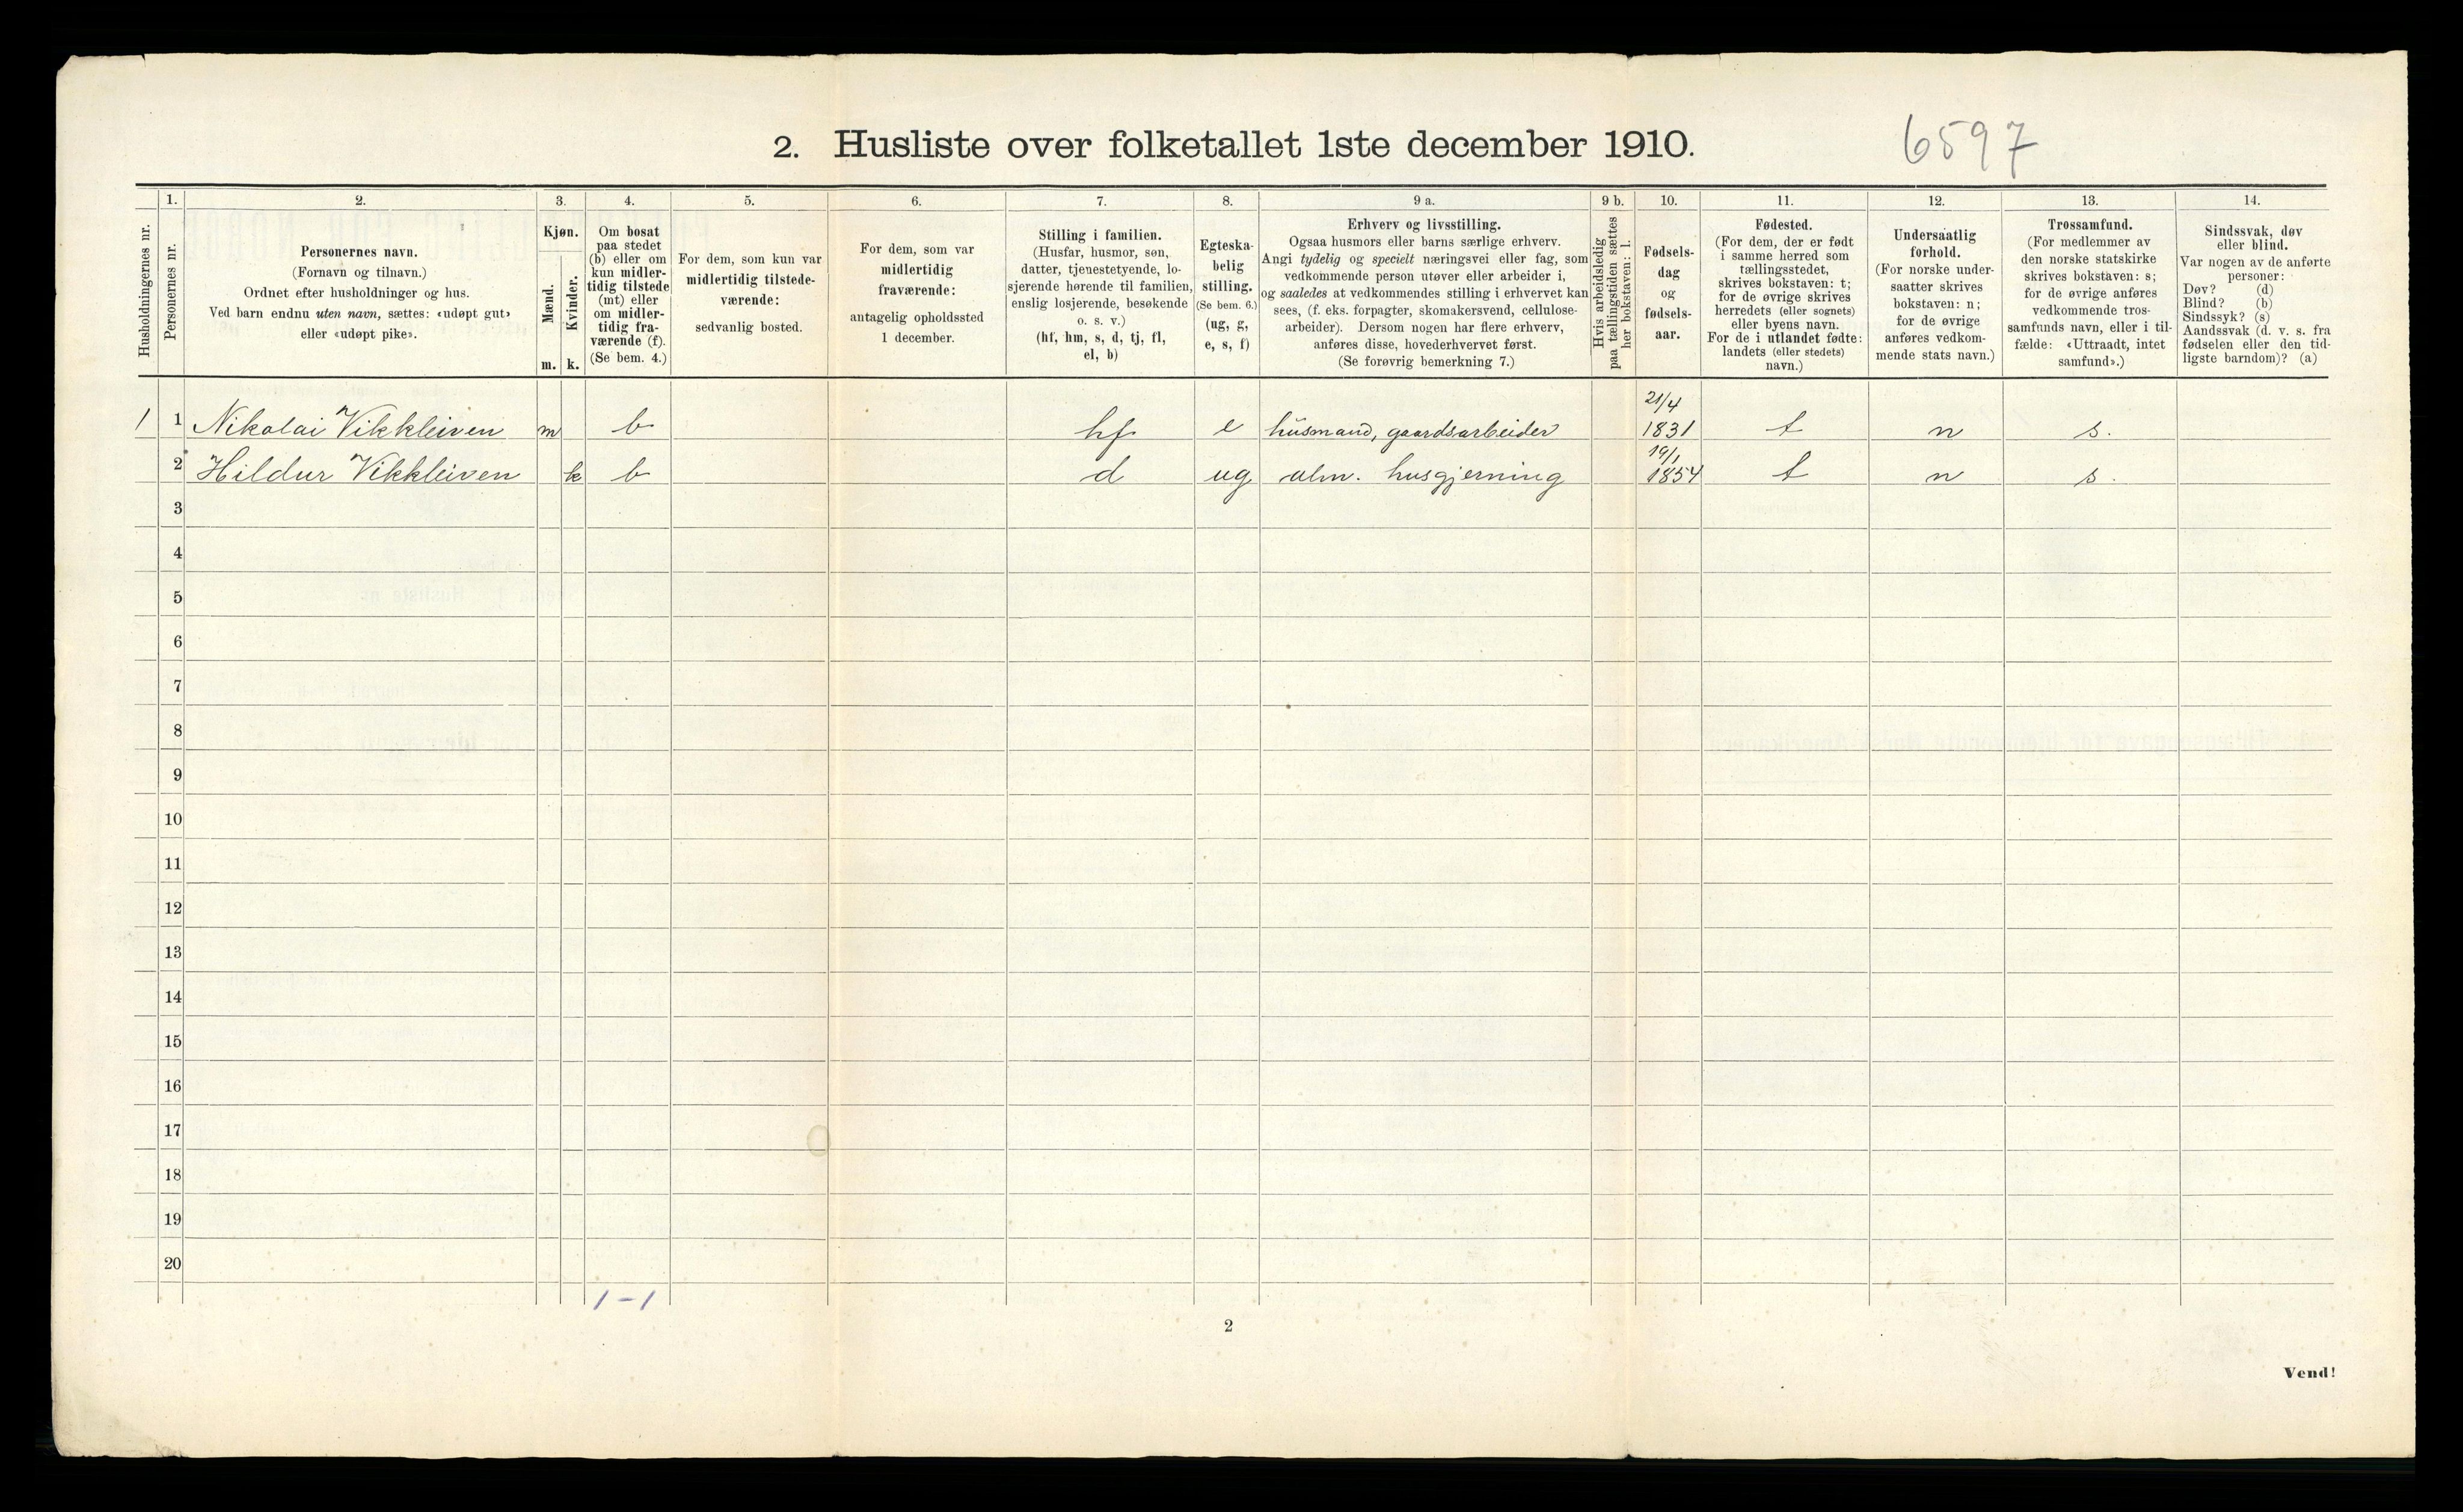 2. Husliste over folketallet 1ste december 1910.
6597
Husholdningernes nr.
1.
Personernes nr.
2.
Personernes navn.
(Fornavn og tilnavn.)
Ordnet efter husholdninger og hus.
Ved barn endnu uten navn, sættes: «udøpt gut»
eller «udøpt pike».
3.
Kjøn.
Mænd.
m.
Kvinder.
k.
4.
Om bosat
paa stedet
(b) eller om
kun midler-
tidig tilstede
(mt) eller
om midler-
tidig fra-
værende (f).
(Se bem. 4.)
5.
For dem, som kun var
midlertidig tilstede-
værende:
sedvanlig bosted.
6.
For dem, som var
midlertidig
fraværende:
antagelig opholdssted
1 december.
7.
Stilling i familien.
(Husfar, husmor, søn,
datter, tjenestetyende, lo-
sjerende hørende til familien,
enslig losjerende, besøkende
o. s. v.)
(hf, hm, s, d, tj, fl,
el, b)
8.
Egteska-
belig
stilling.
(Se bem. 6.)
(ug, g,
e, s, f)
9 a.
Erhverv og livsstilling.
Ogsaa husmors eller barns særlige erhverv.
Angi tydelig og specielt næringsvei eller fag, som
vedkommende person utøver eller arbeider i,
og saaledes at vedkommendes stilling i erhvervet kan
sees, (f. eks. forpagter, skomakersvend, cellulose-
arbeider). Dersom nogen har flere erhverv,
anføres disse, hovederhvervet først.
(Se forøvrig bemerkning 7.)
9 b.
Hvis arbeidsledig
paa tællingstiden sættes
her bokstaven: l.
10.
Fødsels-
dag
og
fødsels-
aar.
11.
Fødested.
(For dem, der er født
i samme herred som
tællingsstedet,
skrives bokstaven: t;
for de øvrige skrives
herredets (eller sognets)
eller byens navn.
For de i utlandet fødte:
landets (eller stedets)
navn.)
12.
Undersaatlig
forhold.
(For norske under-
saatter skrives
bokstaven: n;
for de øvrige
anføres vedkom-
mende stats navn.)
13.
Trossamfund.
(For medlemmer av
den norske statskirke
skrives bokstaven: s;
for de øvrige anføres
vedkommende tros-
samfunds navn, eller i til-
fælde: «Uttraadt, intet
samfund».)
14.
Sindssvak, døv
eller blind.
Var nogen av de anførte
personer:
Døv? (d)
Blind? (b)
Sindssyk? (s)
Aandssvak (d. v. s. fra
fødselen eller den tid-
ligste barndom)? (a)
1 1 Nikolai Vikkleiven m b hf e husmand, gaardsarbeider 21/4 1831 t n s.
2 Hildur Vikkleiven k b d ug alm. husgjerning 19/1 1854 t n s.
3
4
5
6
7
8
9
10
11
12
13
14
15
16
17
18
19
20
1-1
2
Vend!